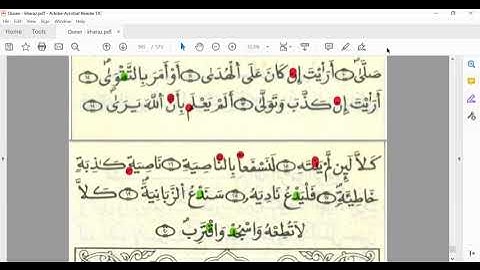 Quran - kharaz.pdf - Adobe Acrobat Reader DC
File Edit View Window Help
Home Tools Quran - kharaz.pdf
صَلَّىٰٓ ۝١٠ أَرَءَيْتَ إِن كَانَ عَلَى ٱلْهُدَىٰٓ ۝١١ أَوْ أَمَرَ بِٱلتَّقْوَىٰٓ ۝١٢
أَرَءَيْتَ إِن كَذَّبَ وَتَوَلَّىٰٓ ۝١٣ أَلَمْ يَعْلَم بِأَنَّ ٱللَّهَ يَرَىٰ ۝١٤
كَلَّا لَئِن لَّمْ يَنتَهِ ۝١٥ لَنَسْفَعًۢا بِٱلنَّاصِيَةِ ۝١٦ نَاصِيَةٍ كَٰذِبَةٍ
خَاطِئَةٍ ۝١٧ فَلْيَدْعُ نَادِيَهُۥ ۝١٨ سَنَدْعُ ٱلزَّبَانِيَةَ ۝١٩ كَلَّا
لَا تُطِعْهُ وَٱسْجُدْ وَٱقْتَرِب ۝٢٠